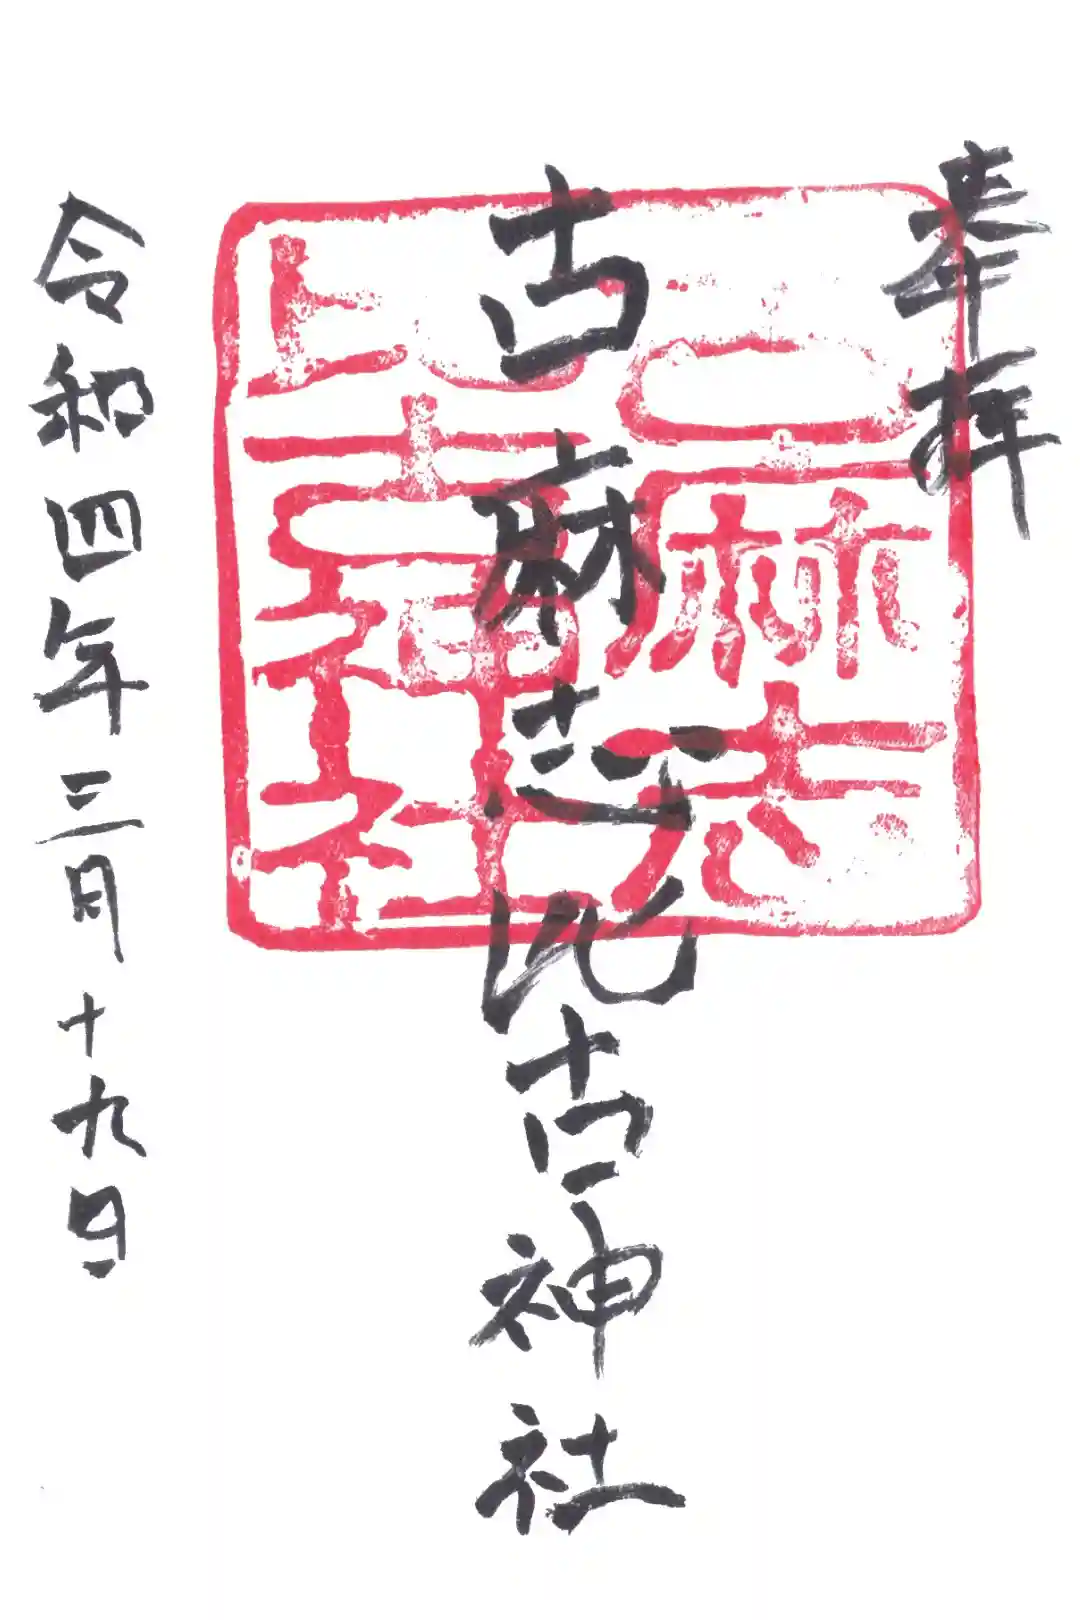 奉拝
古麻志比古神社
古麻志
比古神社
令和四年三月十九日